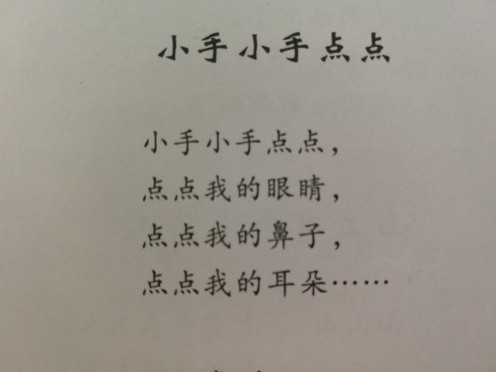 小手小手点点
小手小手点点，
点点我的眼睛，
点点我的鼻子，
点点我的耳朵……